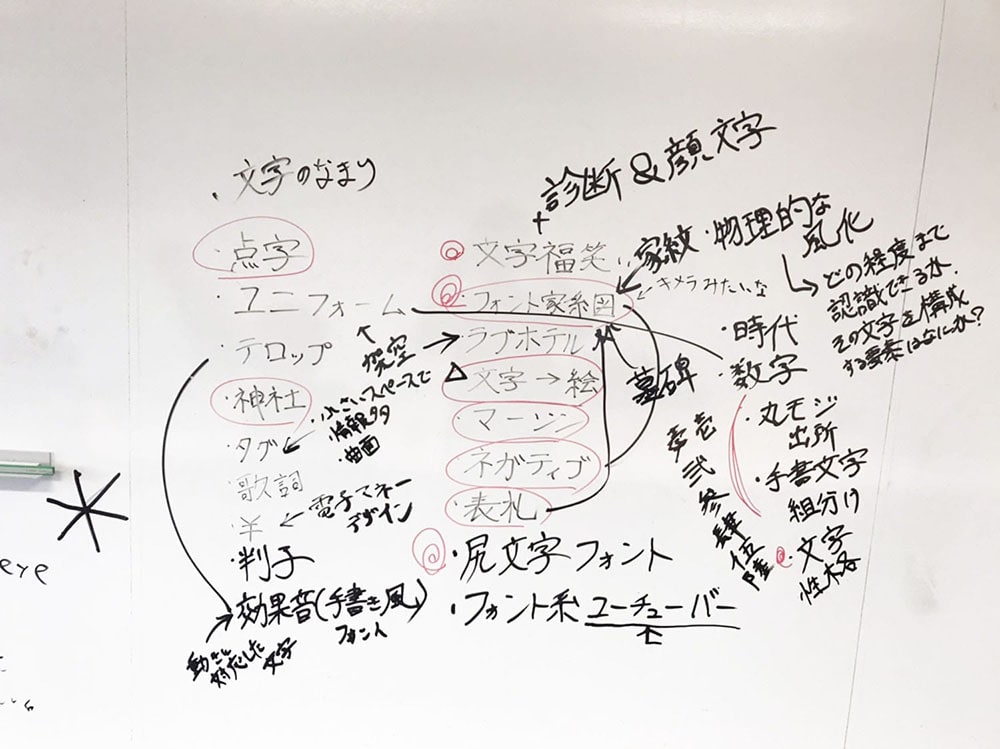 ・文字のなまり
・点字
・ユニフォーム
・テロップ
・神社
・タグ
・歌詞
・¥
・判子
効果音(手書き風)
フォント
動きに
対応した
文字
架空
・小さいスペースで
・情報タタ
・曲面
電子マネー
デザイン
診断&顔文字
+
・文字福笑い
・フォント家系図
・ラブホテル
文字→絵
・マーシン
・ネガティブ
・表札
・尻文字フォント
・フォント系ユーチューバー
家紋・物理的な
風化
どの程度まで
認識できるか.
その文字を構成
する要素はなにか?
キメラみたいな
墓碑
・時代
・数字
・丸モジ
出所
・手書文字
組分け
・文字
性格
壱
弐
参
肆
伍
陸
eye